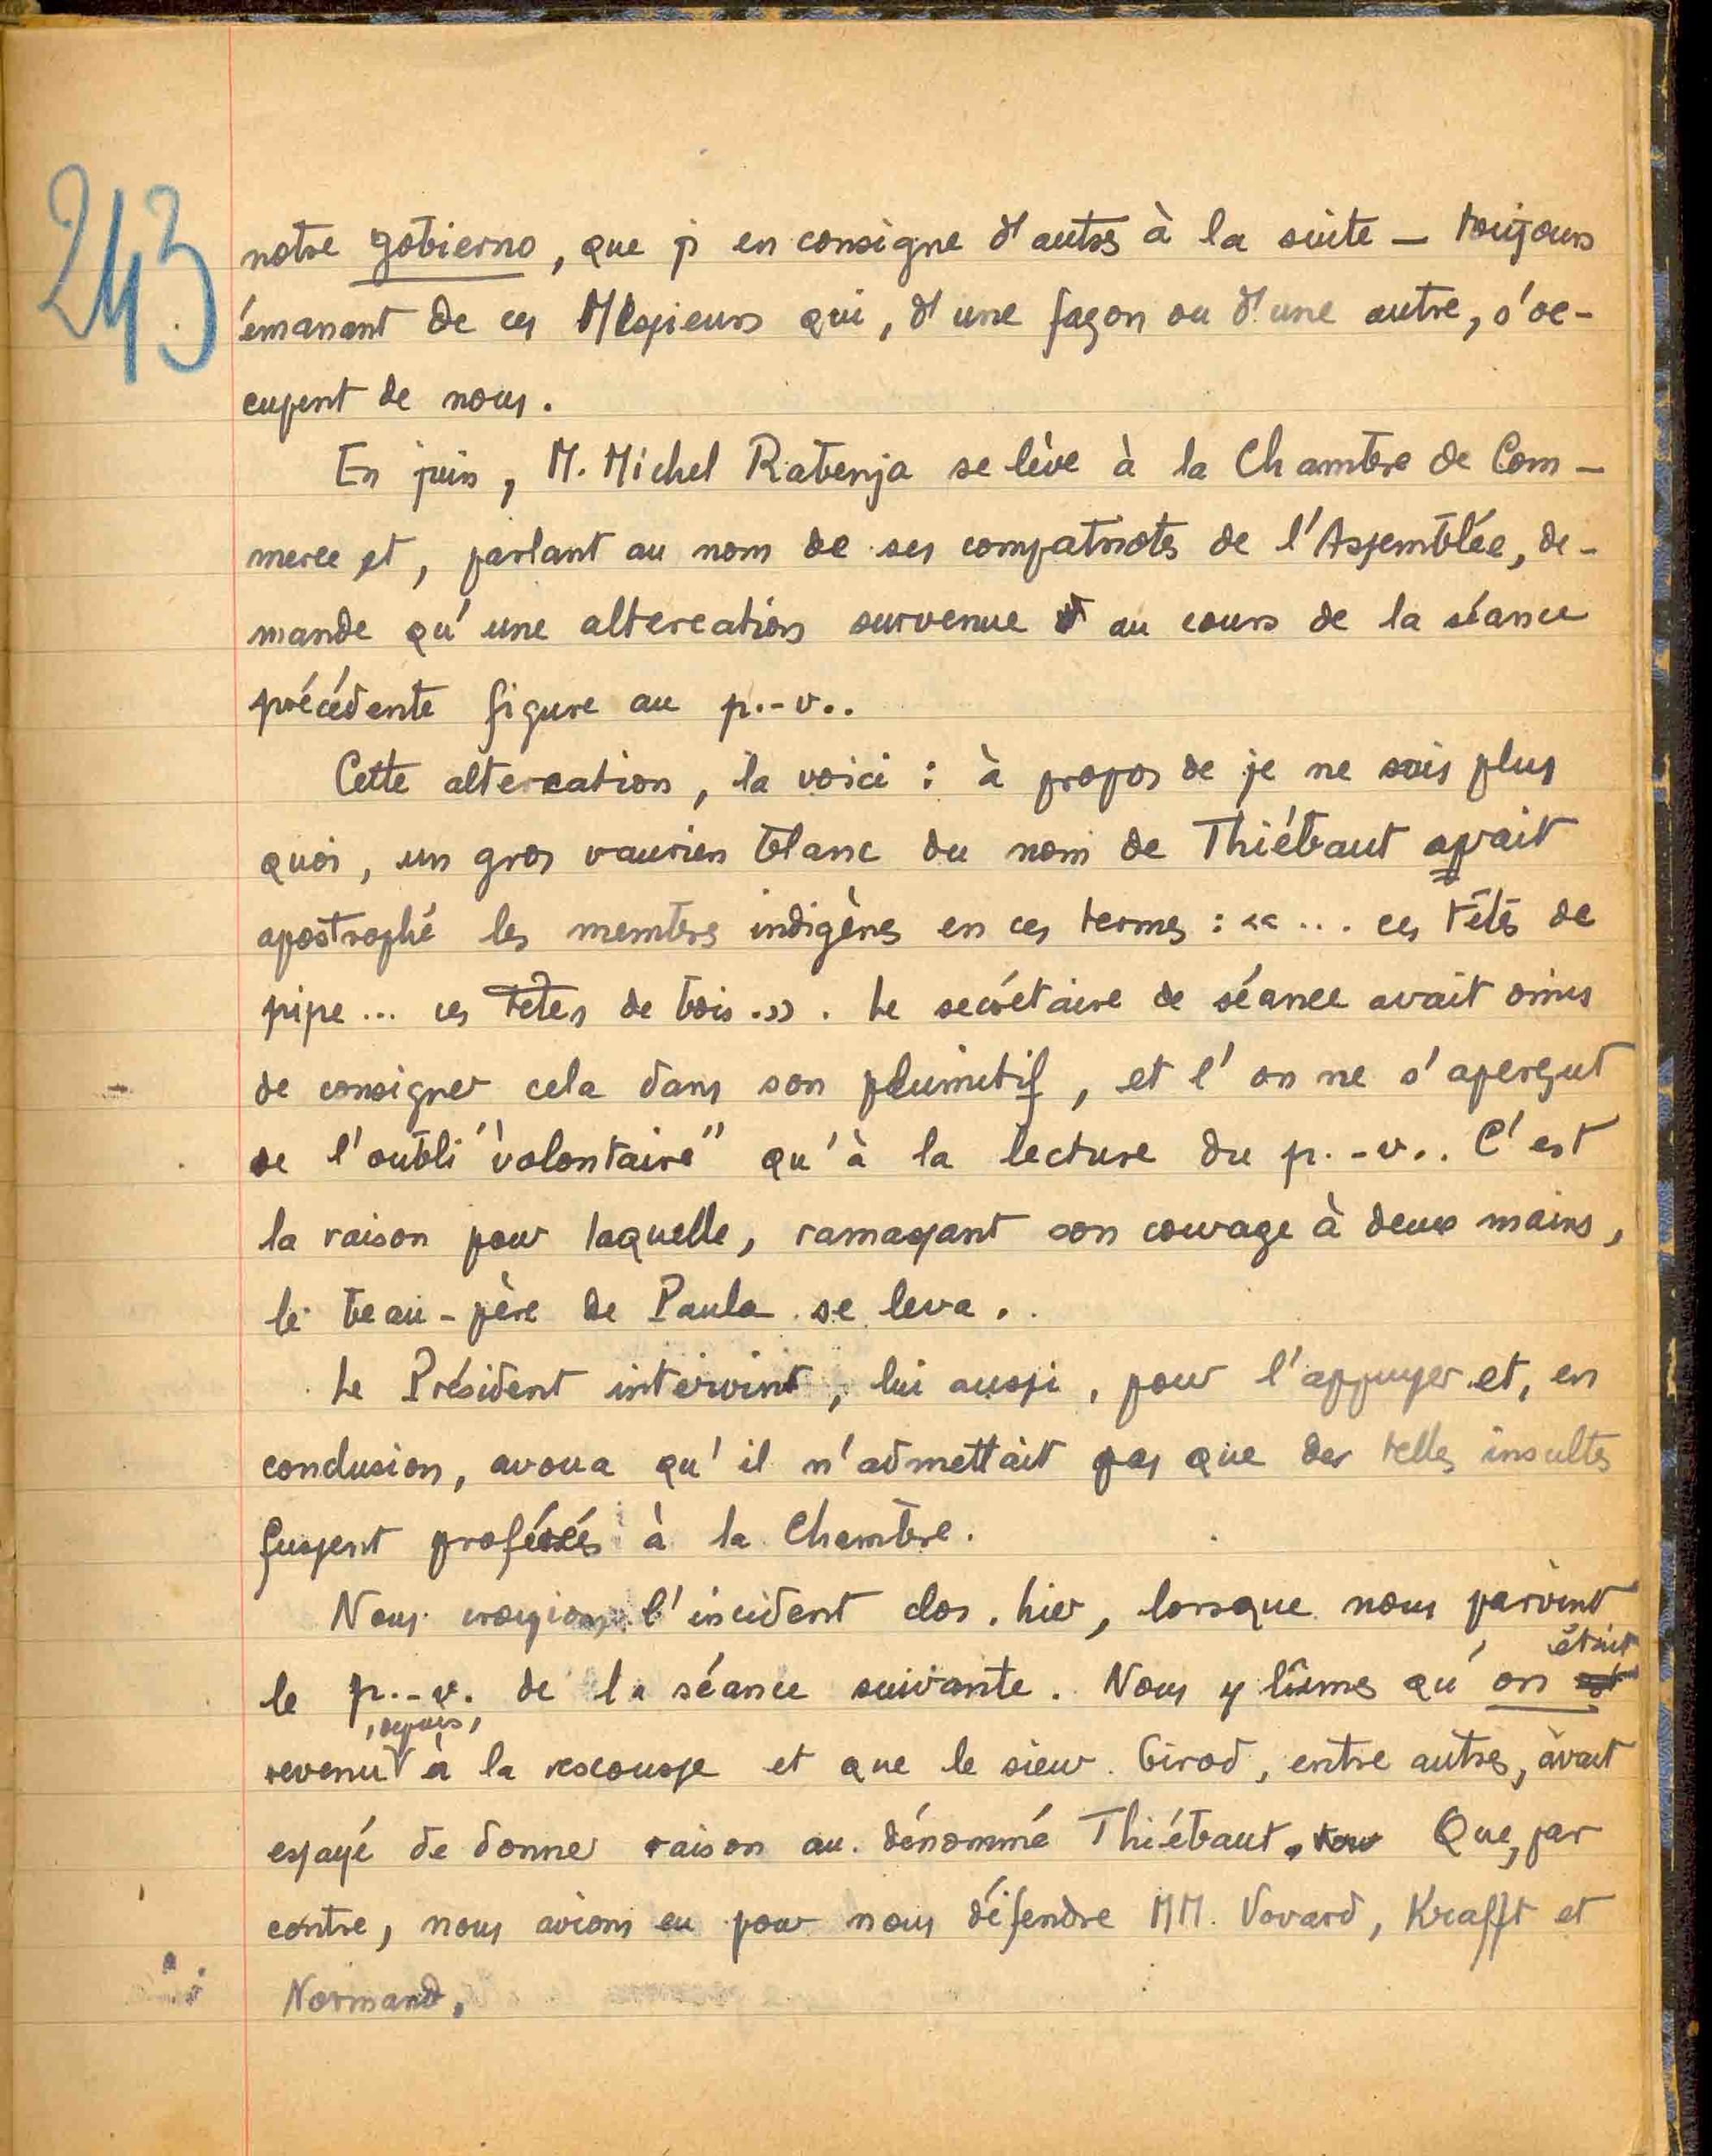 243
notre gobierno, que j'en consigne d'autres à la suite — toujours
émanant de ces Messieurs qui, d'une façon ou d'une autre, s'oc-
cupent de nous.
En juin, M. Michel Rabenja se lève à la Chambre de Com-
merce et, parlant au nom de ses compatriotes de l'Assemblée, de-
mande qu'une altercation survenue au cours de la séance
précédente figure au p.-v..
Cette altercation, la voici : à propos de je ne sais plus
quoi, un gros vaurien blanc du nom de Thiébaut avait
apostrophé les membres indigènes en ces termes : «... ces têtes de
pipe... ces têtes de bois.». Le secrétaire de séance avait omis
de consigner cela dans son plumitif, et l'on ne s'aperçut
de l'oubli "volontaire" qu'à la lecture du p.-v.. C'est
la raison pour laquelle, ramassant son courage à deux mains,
le beau-père de Paula se leva.
Le Président intervint, lui aussi, pour l'appuyer et, en
conclusion, avoua qu'il n'admettait pas que des telles insultes
fussent proférées à la Chambre.
Nous croyions l'incident clos, hier, lorsque nous parvint
le p.-v. de la séance suivante. Nous y lûmes qu'on était
revenu, depuis, à la rescousse et que le sieur Girod, entre autres, avait
essayé de donner raison au dénommé Thiébaut. Que, par
contre, nous avions eu pour nous défendre MM. Vovard, Krafft et
Normand.